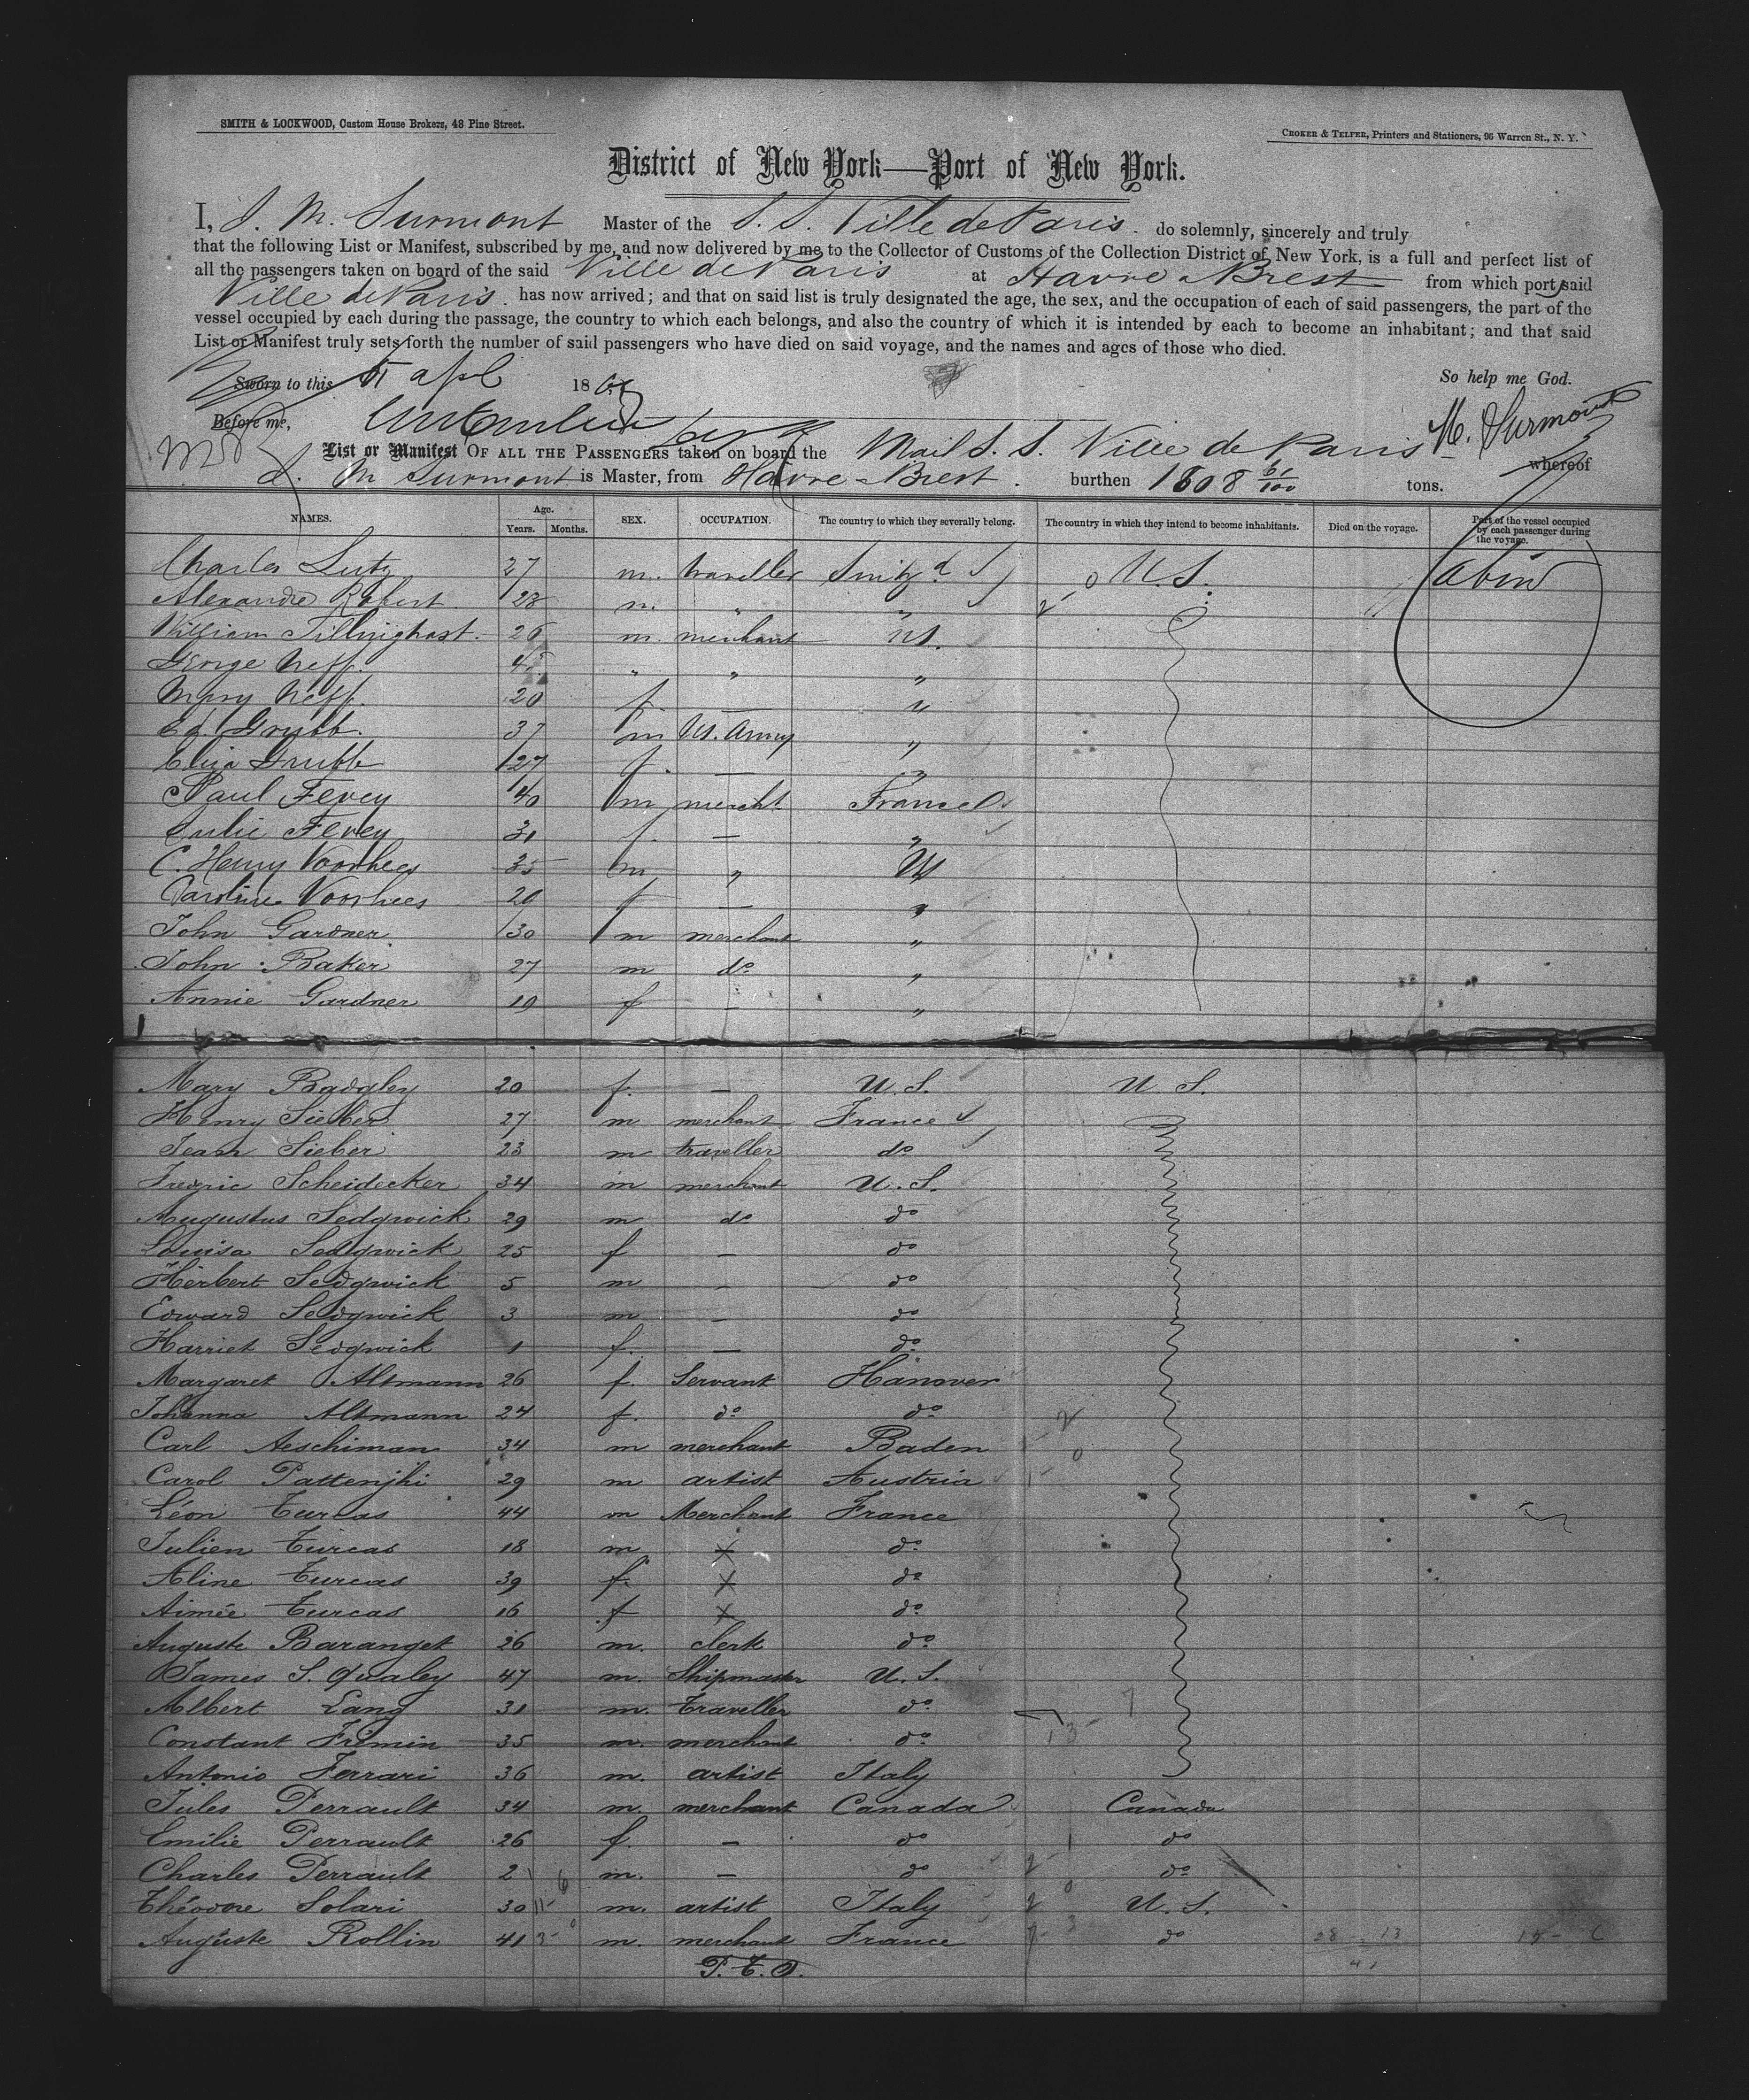 SMITH & LOCKWOOD, Custom House Brokers, 48 Pine Street.
CROKER & TELFER, Printers and Stationers, 95 Warren St., N. Y.
District of New York—Port of New York.
I, J. M. Surmont Master of the S. S. Ville de Paris do solemnly, sincerely and truly
that the following List or Manifest, subscribed by me, and now delivered by me to the Collector of Customs of the Collection District of New York, is a full and perfect list of
all the passengers taken on board of the said Ville de Paris at Havre Brest from which port said
Ville de Paris has now arrived; and that on said list is truly designated the age, the sex, and the occupation of each of said passengers, the part of the
vessel occupied by each during the passage, the country to which each belongs, and also the country of which it is intended by each to become an inhabitant; and that said
List or Manifest truly sets forth the number of said passengers who have died on said voyage, and the names and ages of those who died.
Sworn to this apl 186
So help me God.
Before me,
M. Surmont
List or Manifest OF ALL THE PASSENGERS taken on board the Mail S. S. Ville de Paris whereof
M Surmont is Master, from Havre Brest burthen 1608 61/100 tons.
NAMES. Age. Years. Months. SEX. OCCUPATION. The country to which they severally belong. The country in which they intend to become inhabitants. Died on the voyage. Part of the vessel occupied by each passenger during the voyage.
Charles Lutz 27 m. traveller Switzd U.S. Cabin
Alexandre Robert 28 m. " "
William Tillinghast. 26 m. merchant US.
George Neff. 45 " " "
Mary Neff. 20 f — "
Ed. Grubb. 37 m US. Army "
Eliza Grubb 27 f. — "
Paul Fevey 40 m mercht France
Julie Fevey 31 f. — "
C. Henry Voorhees 35 m " US
Caroline Voorhees 20 f — "
John Gardner 30 m merchant "
John Baker 27 m do "
Annie Gardner 19 f — "
Mary Badgley 20 f. — U. S. U. S.
Henry Sieber 27 m merchant France
Jean Sieber 23 m traveller do
Fredric Scheidecker 34 m merchant U. S.
Augustus Sedgwick 29 m do do
Louisa Sedgwick 25 f — do
Herbert Sedgwick 5 m — do
Edward Sedgwick 3 m — do
Harriet Sedgwick 1 f. — do
Margaret Altmann 26 f. Servant Hanover
Johanna Altmann 24 f. do do
Carl Aeschiman 34 m merchant Baden
Carol Pattenjhi 29 m artist Austria
Léon Turcas 44 m Merchant France
Julien Turcas 18 m x do
Aline Turcas 39 f. x do
Aimée Turcas 16 f x do
Auguste Baranget 26 m. clerk do
James S. Qualey 47 m. Shipmaster U. S.
Albert Lang 31 m. Traveller do
Constant Frémin 35 m. merchant do
Antonio Ferrari 36 m. artist Italy
Jules Perrault 34 m. merchant Canada Canada
Emilie Perrault 26 f. — do do
Charles Perrault 2 m. — do do
Théodore Solari 30 m. artist Italy U. S.
Auguste Rollin 41 m. merchant France do
P. T. O.